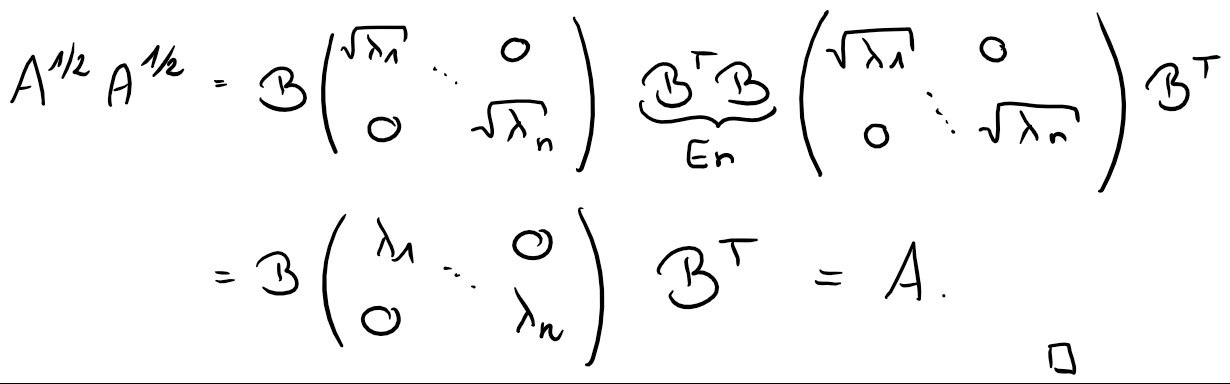 A^{1/2} A^{1/2} = B \begin{pmatrix} \sqrt{\lambda_1} & & 0 \\ & \ddots & \\ 0 & & \sqrt{\lambda_n} \end{pmatrix} \underbrace{B^T B}_{E_n} \begin{pmatrix} \sqrt{\lambda_1} & & 0 \\ & \ddots & \\ 0 & & \sqrt{\lambda_n} \end{pmatrix} B^T
= B \begin{pmatrix} \lambda_1 & & 0 \\ & \ddots & \\ 0 & & \lambda_n \end{pmatrix} B^T = A. □